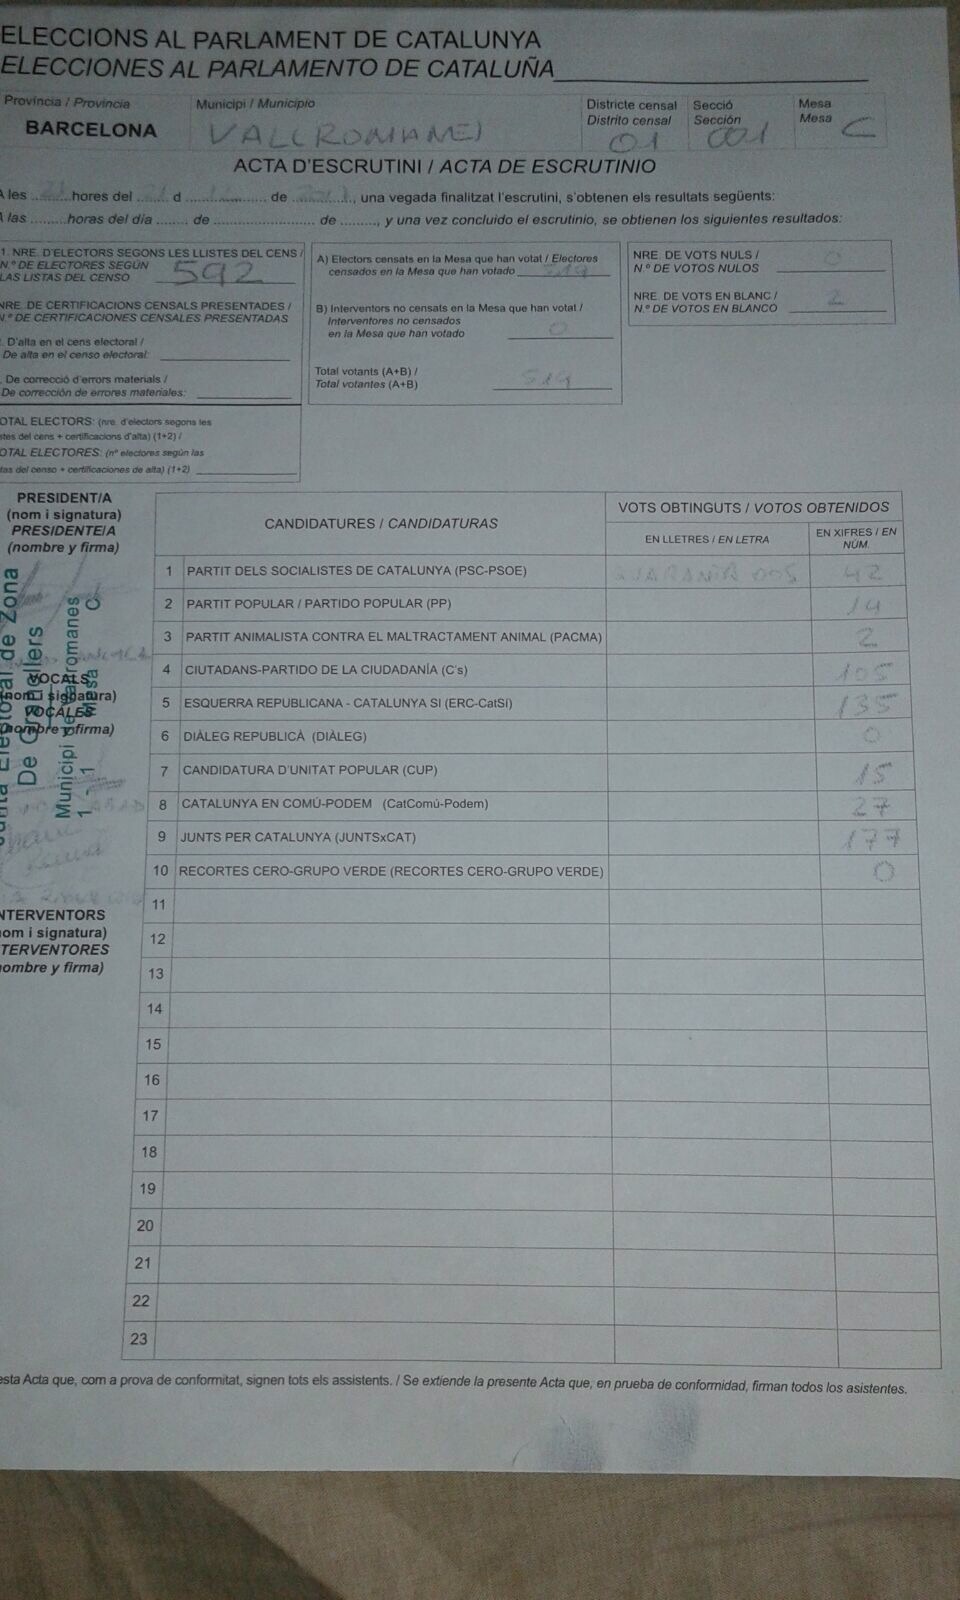 ELECCIONS AL PARLAMENT DE CATALUNYA
ELECCIONES AL PARLAMENTO DE CATALUÑA
Província / Provincia
BARCELONA
Municipi / Municipio
VALLROMANES
Districte censal
Distrito censal
01
Secció
Sección
001
Mesa
Mesa
C
ACTA D'ESCRUTINI / ACTA DE ESCRUTINIO
A les ........ hores del ........ d ................ de ............, una vegada finalitzat l'escrutini, s'obtenen els resultats següents:
A las .........horas del día ....... de ..................... de ........., y una vez concluido el escrutinio, se obtienen los siguientes resultados:
1. NRE. D'ELECTORS SEGONS LES LLISTES DEL CENS /
N.º DE ELECTORES SEGÚN
LAS LISTAS DEL CENSO 592
NRE. DE CERTIFICACIONS CENSALS PRESENTADES /
N.º DE CERTIFICACIONES CENSALES PRESENTADAS
. D'alta en el cens electoral /
De alta en el censo electoral:
. De correcció d'errors materials /
De corrección de errores materiales:
OTAL ELECTORS: (nre. d'electors segons les
stes del cens + certificacions d'alta) (1+2) /
OTAL ELECTORES: (nº electores según las
tas del censo + certificaciones de alta) (1+2)
A) Electors censats en la Mesa que han votat / Electores
censados en la Mesa que han votado 519
B) Interventors no censats en la Mesa que han votat /
Interventores no censados
en la Mesa que han votado 0
Total votants (A+B) /
Total votantes (A+B) 519
NRE. DE VOTS NULS /
N.º DE VOTOS NULOS 0
NRE. DE VOTS EN BLANC /
N.º DE VOTOS EN BLANCO 2
PRESIDENT/A
(nom i signatura)
PRESIDENTE/A
(nombre y firma)
VOCALS
(nom i signatura)
VOCALES
(nombre y firma)
Junta Electoral de Zona
De Granollers
Municipi de Vallromanes
1 - 1 Mesa C
NTERVENTORS
nom i signatura)
TERVENTORES
nombre y firma)
CANDIDATURES / CANDIDATURAS
VOTS OBTINGUTS / VOTOS OBTENIDOS
EN LLETRES / EN LETRA
EN XIFRES / EN
NÚM.
1 PARTIT DELS SOCIALISTES DE CATALUNYA (PSC-PSOE) QUARANTA DOS 42
2 PARTIT POPULAR / PARTIDO POPULAR (PP) 14
3 PARTIT ANIMALISTA CONTRA EL MALTRACTAMENT ANIMAL (PACMA) 2
4 CIUTADANS-PARTIDO DE LA CIUDADANÍA (C's) 105
5 ESQUERRA REPUBLICANA - CATALUNYA SI (ERC-CatSí) 135
6 DIÀLEG REPUBLICÀ (DIÀLEG) 0
7 CANDIDATURA D'UNITAT POPULAR (CUP) 15
8 CATALUNYA EN COMÚ-PODEM (CatComú-Podem) 27
9 JUNTS PER CATALUNYA (JUNTSxCAT) 177
10 RECORTES CERO-GRUPO VERDE (RECORTES CERO-GRUPO VERDE) 0
11
12
13
14
15
16
17
18
19
20
21
22
23
esta Acta que, com a prova de conformitat, signen tots els assistents. / Se extiende la presente Acta que, en prueba de conformidad, firman todos los asistentes.